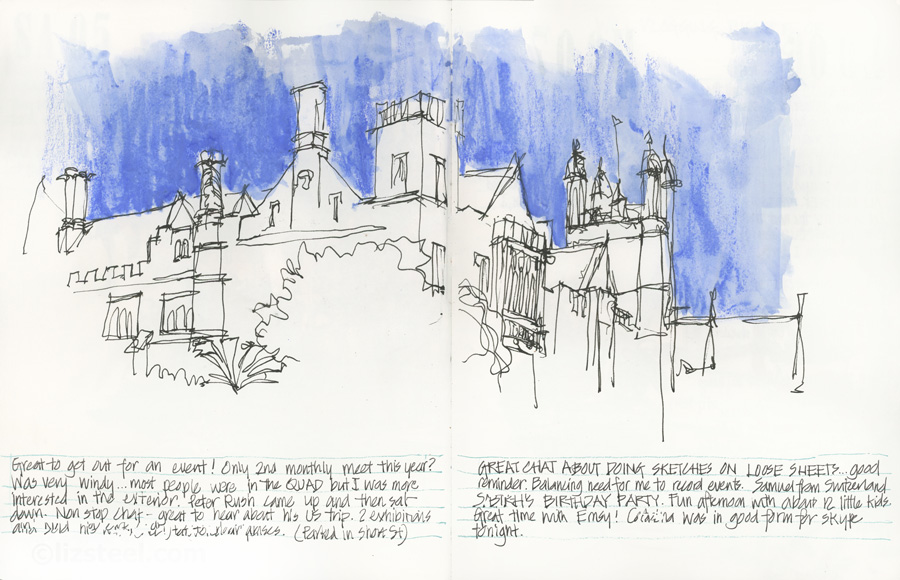 Great to get out for an event! Only 2nd monthly meet this year?
Was very windy... most people were in the QUAD but I was more
interested in the exterior. Peter Rush came up and then sat
down. Non stop chat - great to hear about his US trip. 2 exhibitions
and sold his (Parked in Short St)
GREAT CHAT ABOUT DOING SKETCHES ON LOOSE SHEETS... good
reminder. Balancing need for me to record events. Samuel from Switzerland
BIRTHDAY PARTY. Fun afternoon with about 12 little kids.
Great time with Emsy! was in good form for skype
tonight.
©lizsteel.com